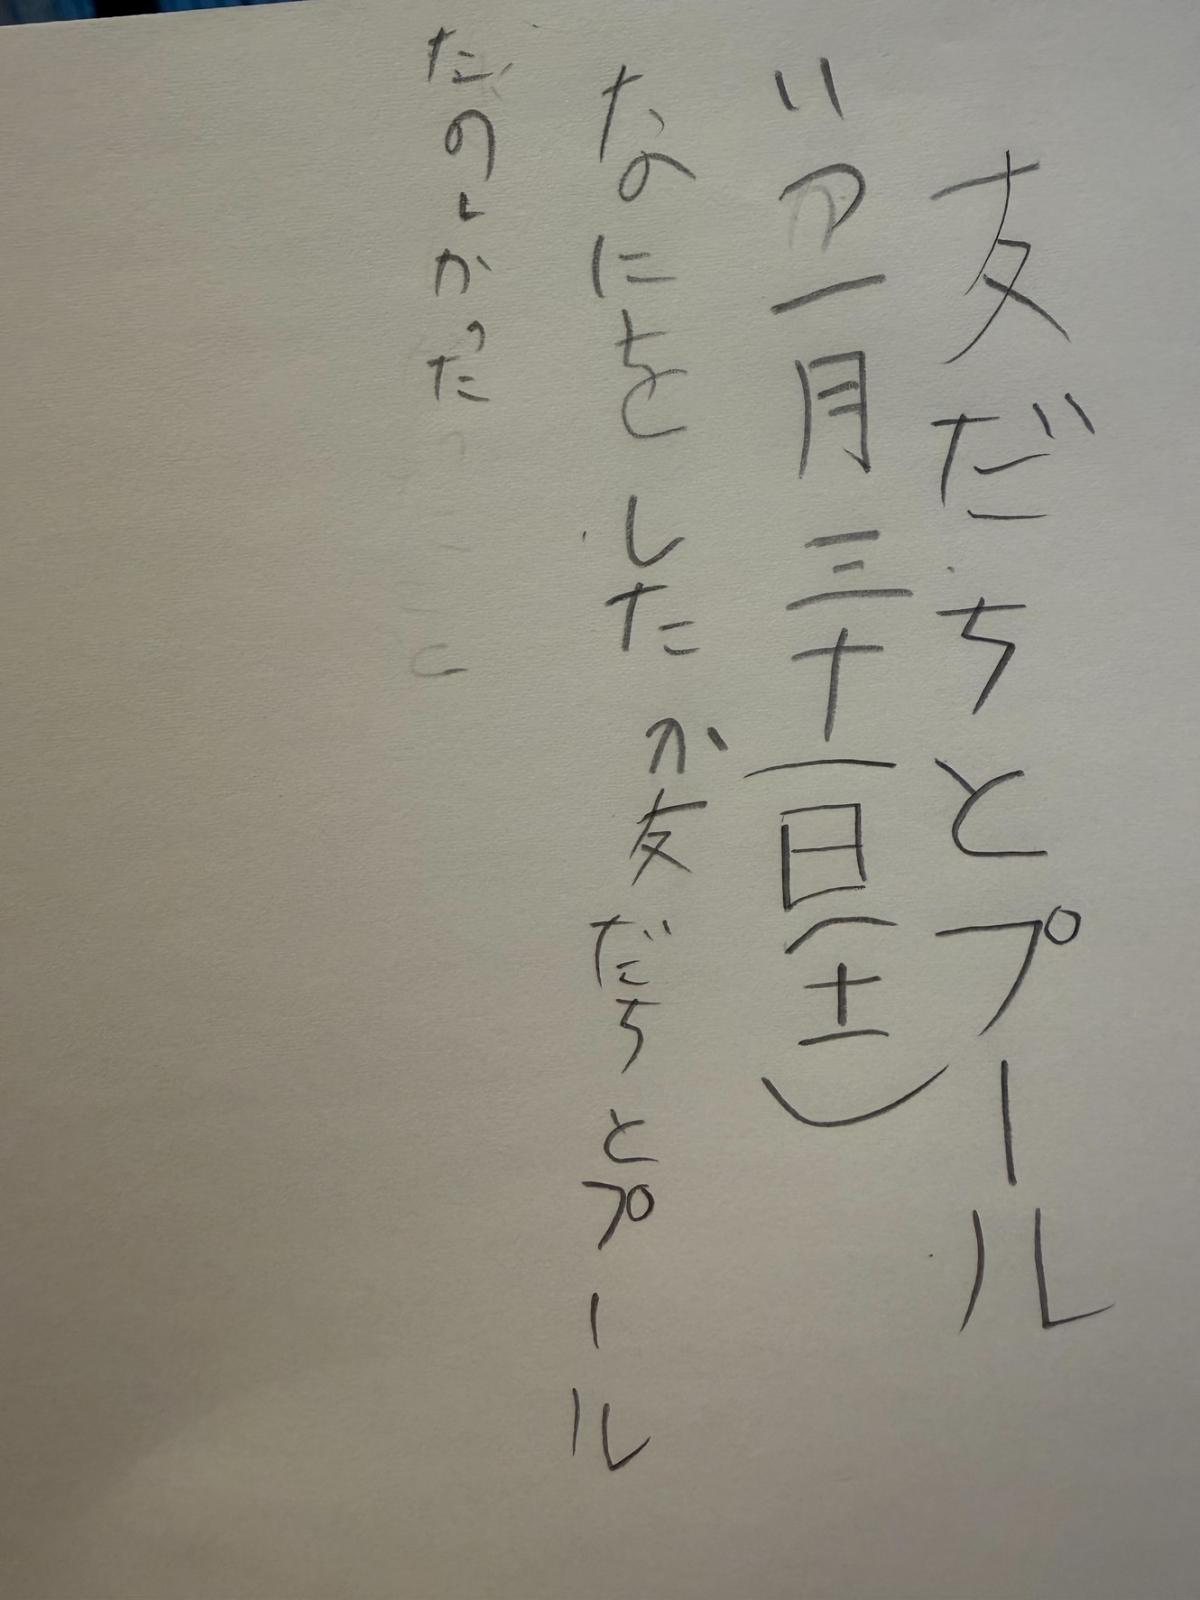 友だちとプール
いつ一月三十一日(土)
なにをしたか友だちとプール
たのしかった